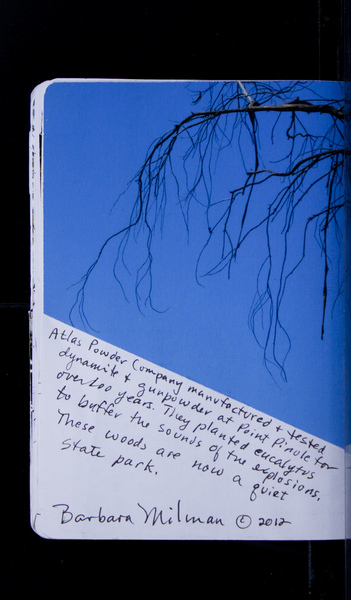 Atlas Powder Company manufactured + tested
dynamite + gunpowder at Point Pinole for
over 100 years. They planted eucalyptus
to buffer the sounds of the explosions.
These woods are now a quiet
State park.
Barbara Milman © 2012